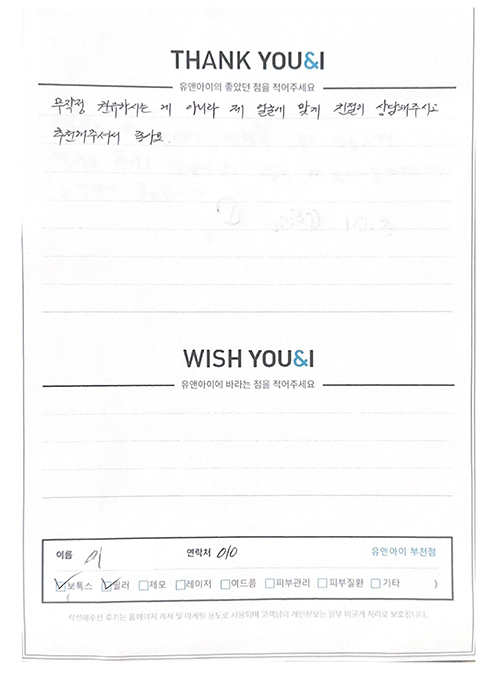 THANK YOU&I
유앤아이의 좋았던 점을 적어주세요
무작정 권유하시는 게 아니라 제 얼굴에 맞게 친절히 상담해주시고
추천해주셔서 좋아요.
WISH YOU&I
유앤아이에 바라는 점을 적어주세요
이름 이 연락처 010 유앤아이 부천점
보톡스 필러 제모 레이저 여드름 피부관리 피부질환 기타 )
(
작성해주신 후기는 홈페이지 게재 및 마케팅 용도로 사용되며 고객님의 개인정보는 일부 비공개 처리로 보호됩니다.